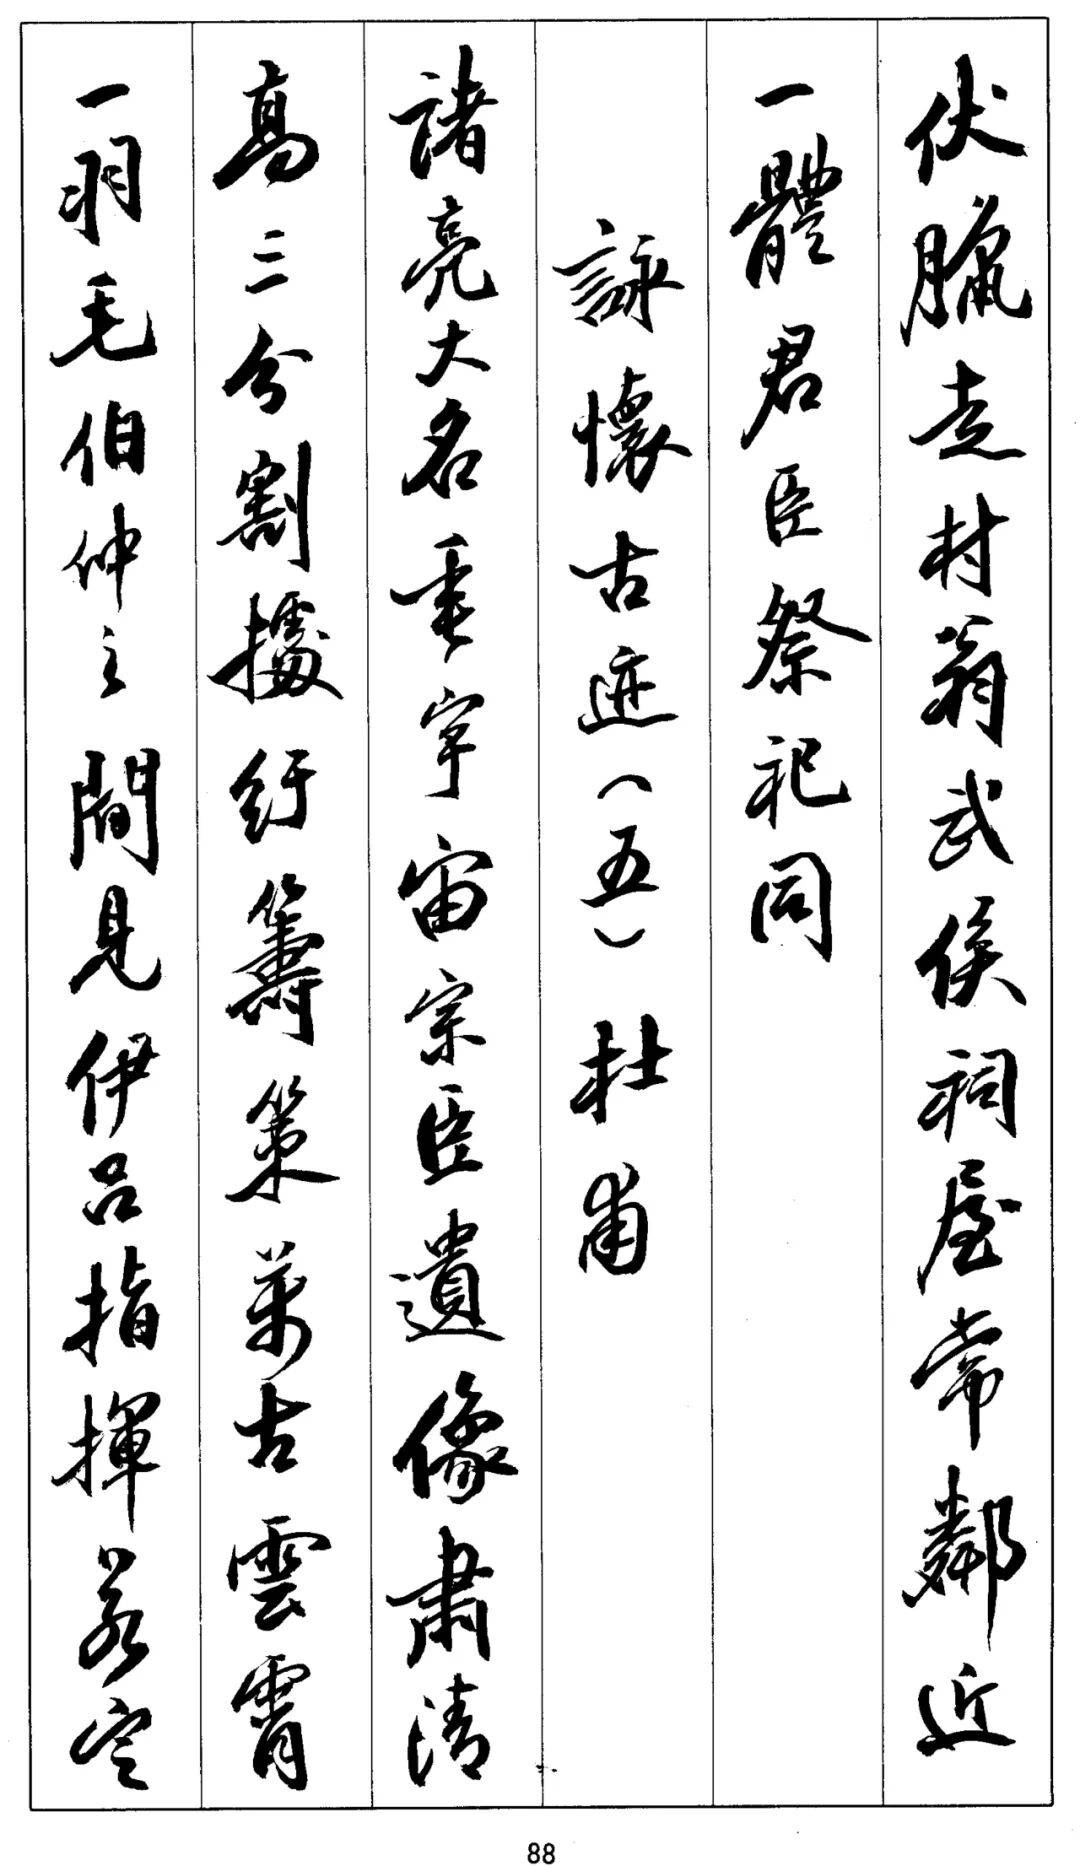 伏臘走村翁武侯祠屋常鄰近
一體君臣祭祀同
詠懷古迹（五）杜甫
諸亮大名垂宇宙宗臣遺像肅清
高三分割據紆籌策萬古雲霄
一羽毛伯仲之間見伊呂指揮若定
88